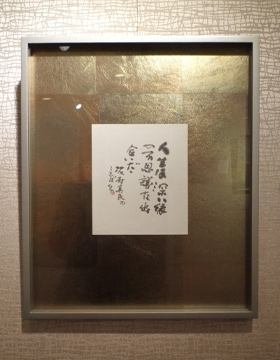 人生は深い縁
の不思議な出
会いだ
坂村真民の